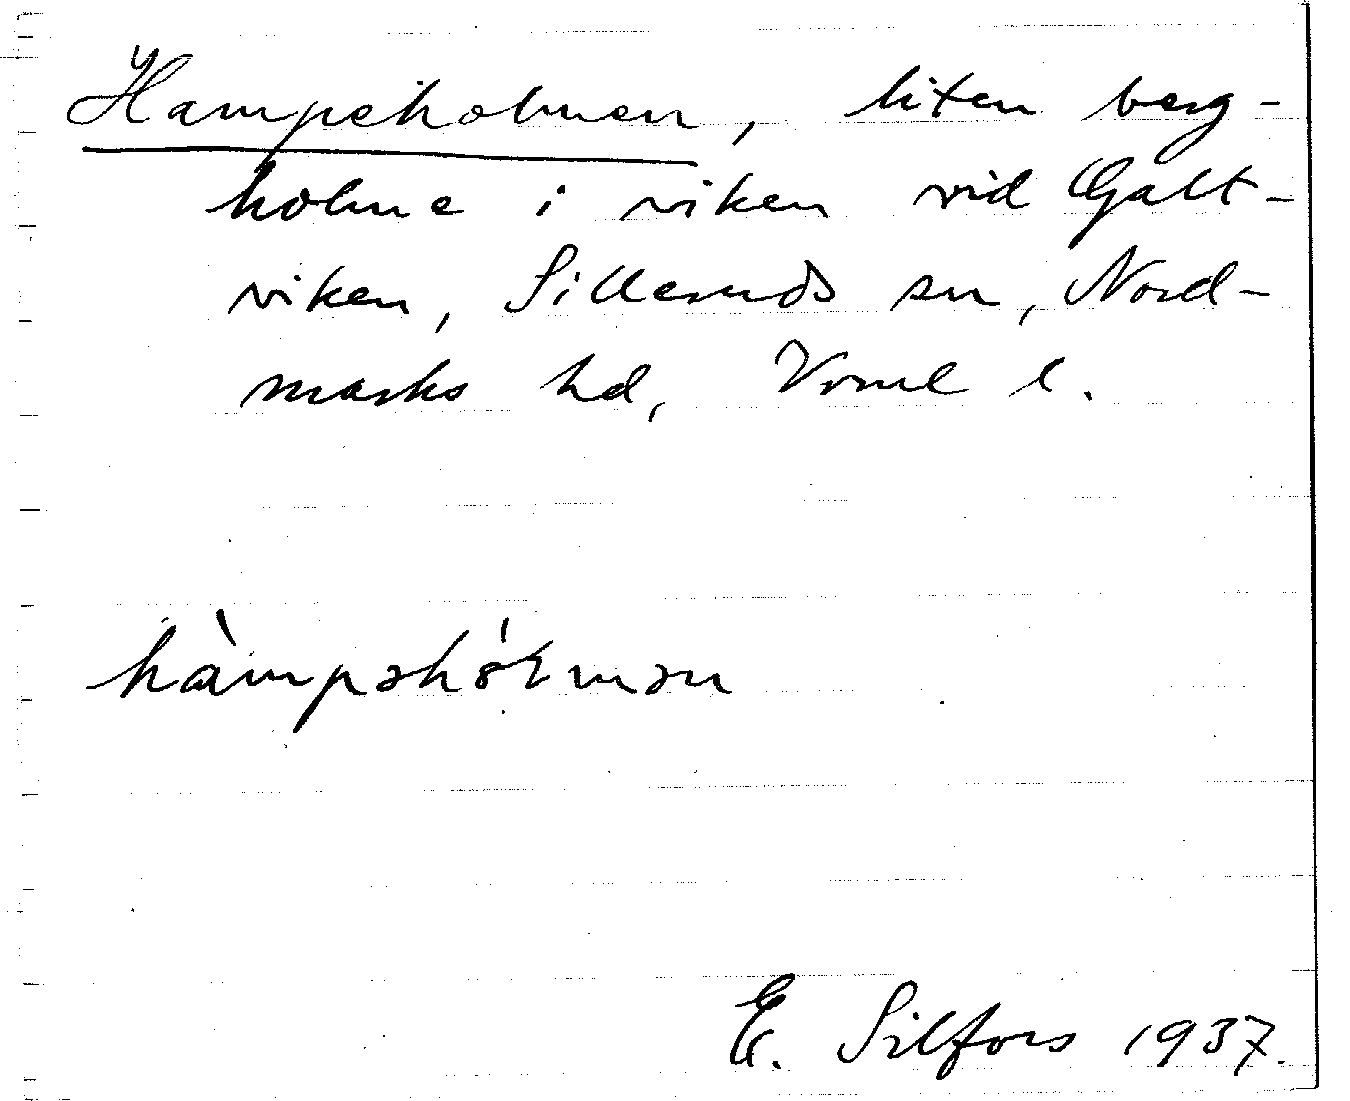 Hampeholmen, liten berg-
holme i viken vid Galt-
viken, Silleruds sn, Nord-
marks hd, Vrml l.
hàmpəhólmən
E. Silfors 1937.